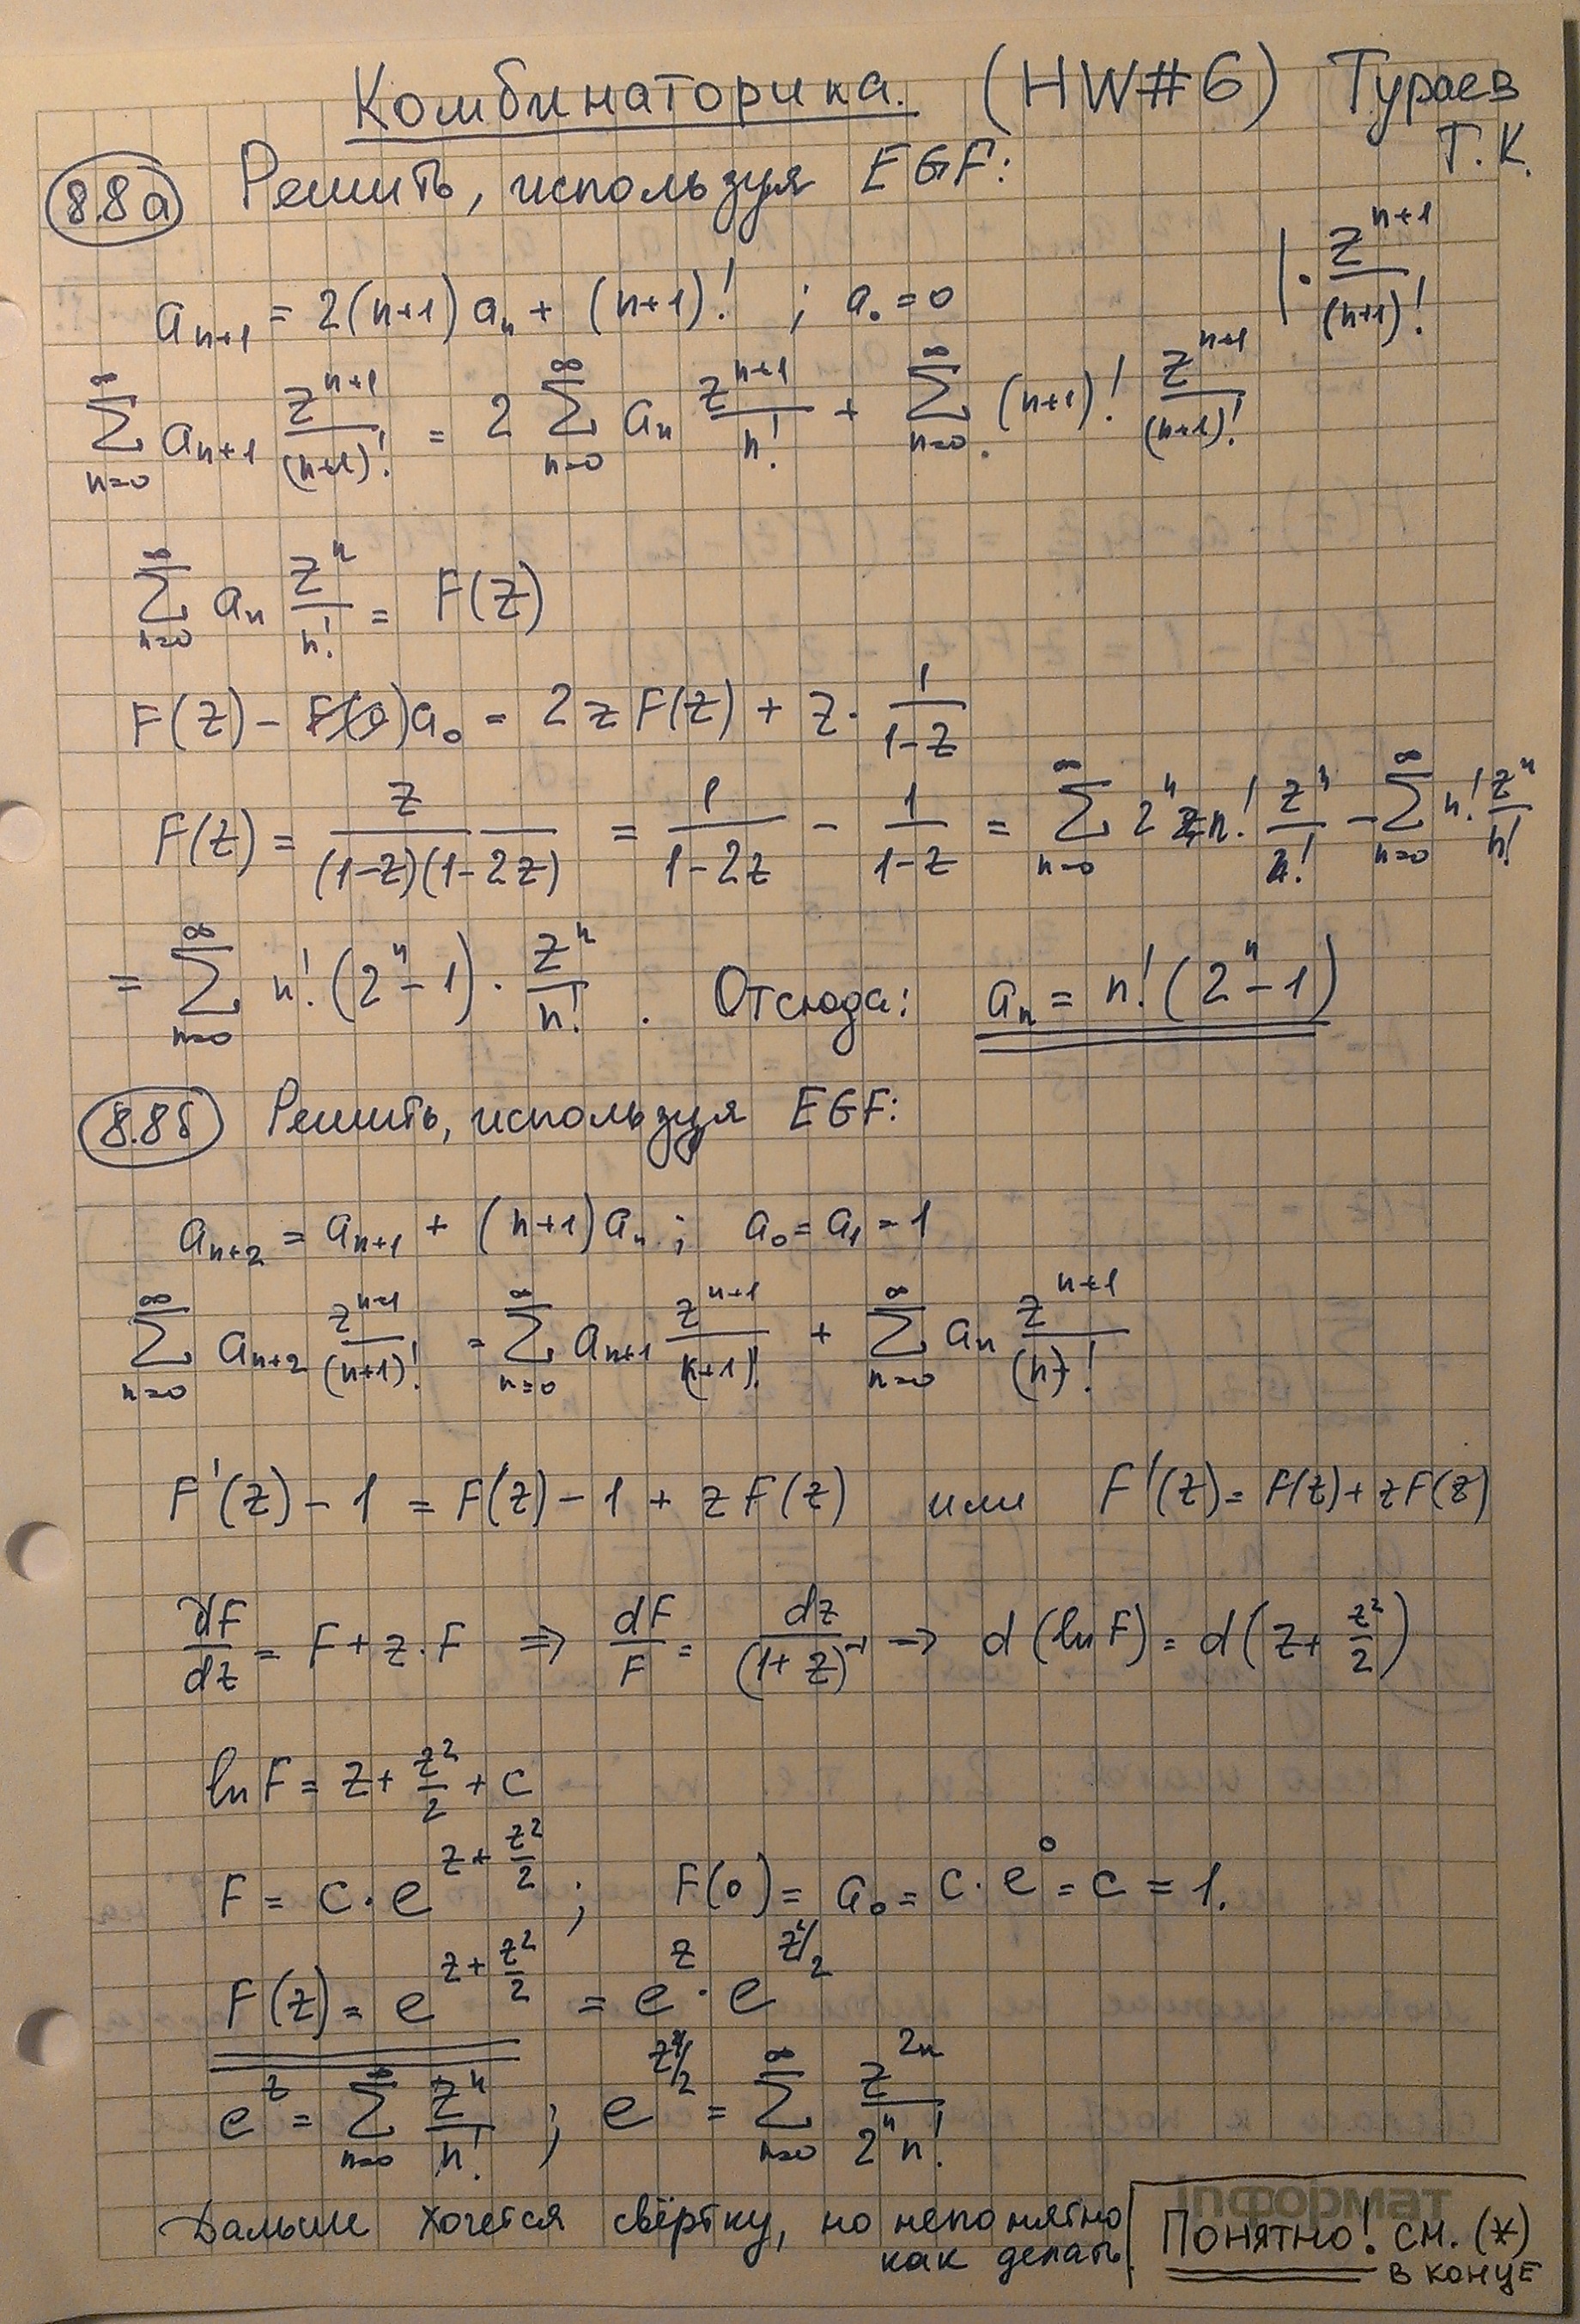 Комбинаторика. (HW#6) Тураев
Т.К.
8.8а Решить, используя EGF:
a_{n+1} = 2(n+1) a_n + (n+1)! ; a_0 = 0 | · z^{n+1}/(n+1)!
∑_{n=0}^{∞} a_{n+1} z^{n+1}/(n+1)! = 2 ∑_{n=0}^{∞} a_n z^{n+1}/n! + ∑_{n=0}^{∞} (n+1)! z^{n+1}/(n+1)!
∑_{n=0}^{∞} a_n z^n/n! = F(z)
F(z) - a_0 = 2 z F(z) + z · 1/(1-z)
F(z) = z/((1-z)(1-2z)) = 1/(1-2z) - 1/(1-z) = ∑_{n=0}^{∞} 2^n n! z^n/n! - ∑_{n=0}^{∞} n! z^n/n!
= ∑_{n=0}^{∞} n! (2^n - 1) · z^n/n! . Отсюда: a_n = n! (2^n - 1)
8.8б Решить, используя EGF:
a_{n+2} = a_{n+1} + (n+1) a_n ; a_0 = a_1 = 1
∑_{n=0}^{∞} a_{n+2} z^{n+1}/(n+1)! = ∑_{n=0}^{∞} a_{n+1} z^{n+1}/(n+1)! + ∑_{n=0}^{∞} a_n z^{n+1}/(n)!
F'(z) - 1 = F(z) - 1 + z F(z) или F'(z) = F(z) + z F(z)
dF/dz = F + z · F ⇒ dF/F = dz/(1+z)^{-1} → d(ln F) = d(z + z²/2)
ln F = z + z²/2 + c
F = c · e^{z + z²/2} ; F(0) = a_0 = c · e^0 = c = 1.
F(z) = e^{z + z²/2} = e^z · e^{z²/2}
e^z = ∑_{n=0}^{∞} z^n/n! ; e^{z²/2} = ∑_{n=0}^{∞} z^{2n}/(2^n n!)
Дальше хочется свёртку, но непонятно
как делать
информат
Понятно! см. (*)
в конце